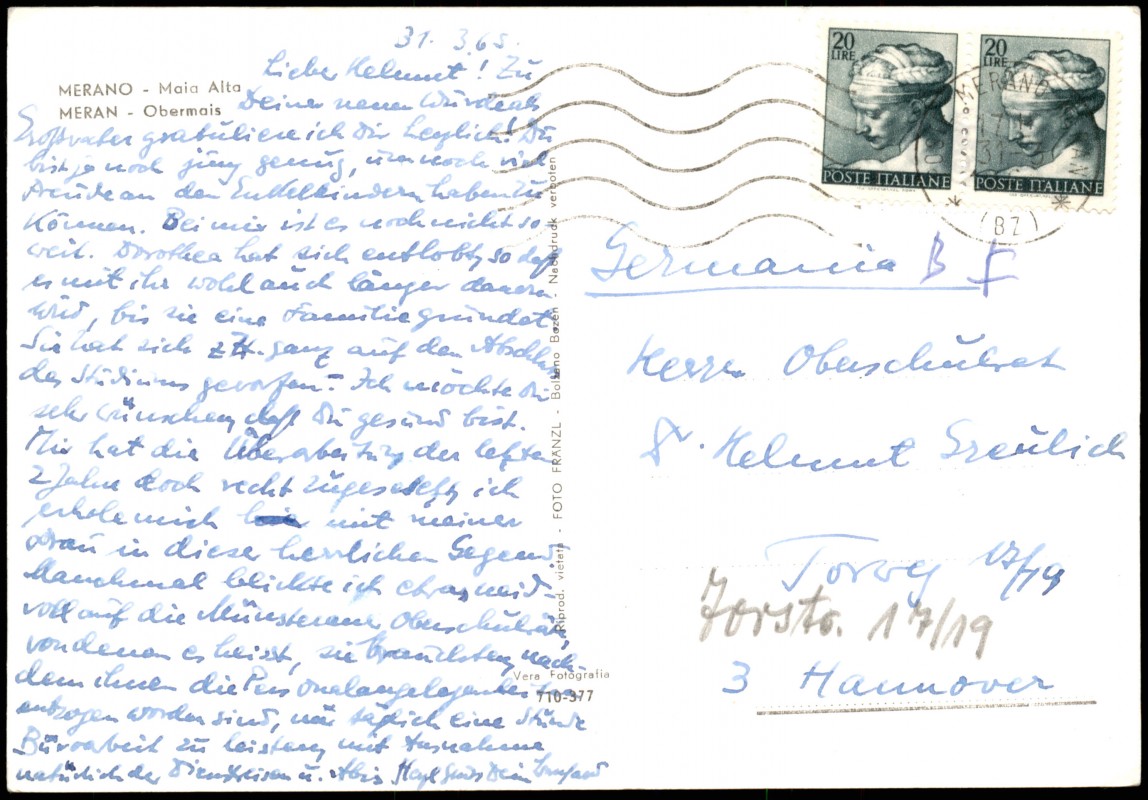 31. 3.65.
Lieber Helmut! Zu
MERANO - Maia Alta
MERAN - Obermais
Deiner neuen Würde als
Großvater gratuliere ich Dir herzlich! Du
bist ja noch jung genug, um noch viel
Freude an den Enkelkindern haben zu
können. Bei mir ist es noch nicht so
weit. Dorothea hat sich entlobt, so daß
es mit ihr wohl auch länger dauern
wird, bis sie eine Familie gründet.
Sie hat sich z. Zt. ganz auf den Abschluß
des Studiums geworfen. - Ich möchte Dir
sehr wünschen, daß Du gesund bist.
Mir hat die Überarbeitung der letzten
2 Jahre doch recht zugesetzt, ich
erhole mich mit meiner
Frau in dieser herrlichen Gegend.
Manchmal blickte ich etwas neid-
voll auf die Münsteraner Oberschulräte,
von denen es heisst, sie brauchten, nach-
dem ihnen die Personalangelegenheiten
entzogen worden sind, nur täglich eine Stunde
Büroarbeit zu leisten, mit Ausnahme
natürlich der Dienstreisen u. Abis Herzl Gruß Dein
Riprod. vietata - FOTO FRÄNZL - Bolzano Bozen - Nachdruck verboten
Vera Fotografia
710-377
20 LIRE
POSTE ITALIANE
20 LIRE
POSTE ITALIANE
MERANO
31
(BZ)
Germania B
Herrn Oberschulrat
Dr. Helmut Greulich
Torweg 17/19
Forstr. 17/19
3 Hannover